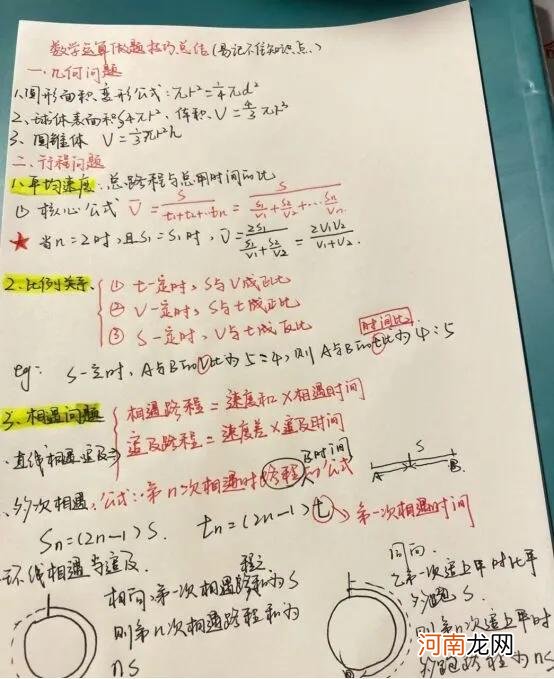 数学运算做题技巧总结(易记不住知识点.)
一.几何问题
1.圆形面积变形公式:πr²=¼πd²
2.球体表面积S4πr². 体积V=4/3 πr³
3.圆锥体 V=⅓πr²h
二.行程问题
1.平均速度:总路程与总用时间的比
(1) 核心公式 V̄ = S/(t₁+t₂+…tn) = S/(S₁/V₁+S₂/V₂+…Sn/Vn)
★ 当n=2时,且S₁=S₁时, V̄=2S₁/(S₁/V₁+S₂/V₂) = 2V₁V₂/(V₁+V₂).
2.比例关系.
① t一定时,S与V成正比
② V一定时,S与t成正比
③ S一定时,V与t成反比
时间比
eg: S一定时,A与B的V比为5:4,则A与B的t比为4:5
3.相遇问题
相遇路程=速度和×相遇时间
追及路程=速度差×追及时间
·直线相遇追及
B时间
·多次相遇:公式:第n次相遇时路程的公式
S
A
B.
Sn=(2n-1)S. tn=(2n-1)t
第一次相遇时间
·环线相遇与追及.
相向:第一次相遇路程和为S
则第n次相遇路程和为
nS
同向.
乙第一次追上甲时比甲
多跑S.
则第n次追上甲时
多跑路程为nS
河南龙网